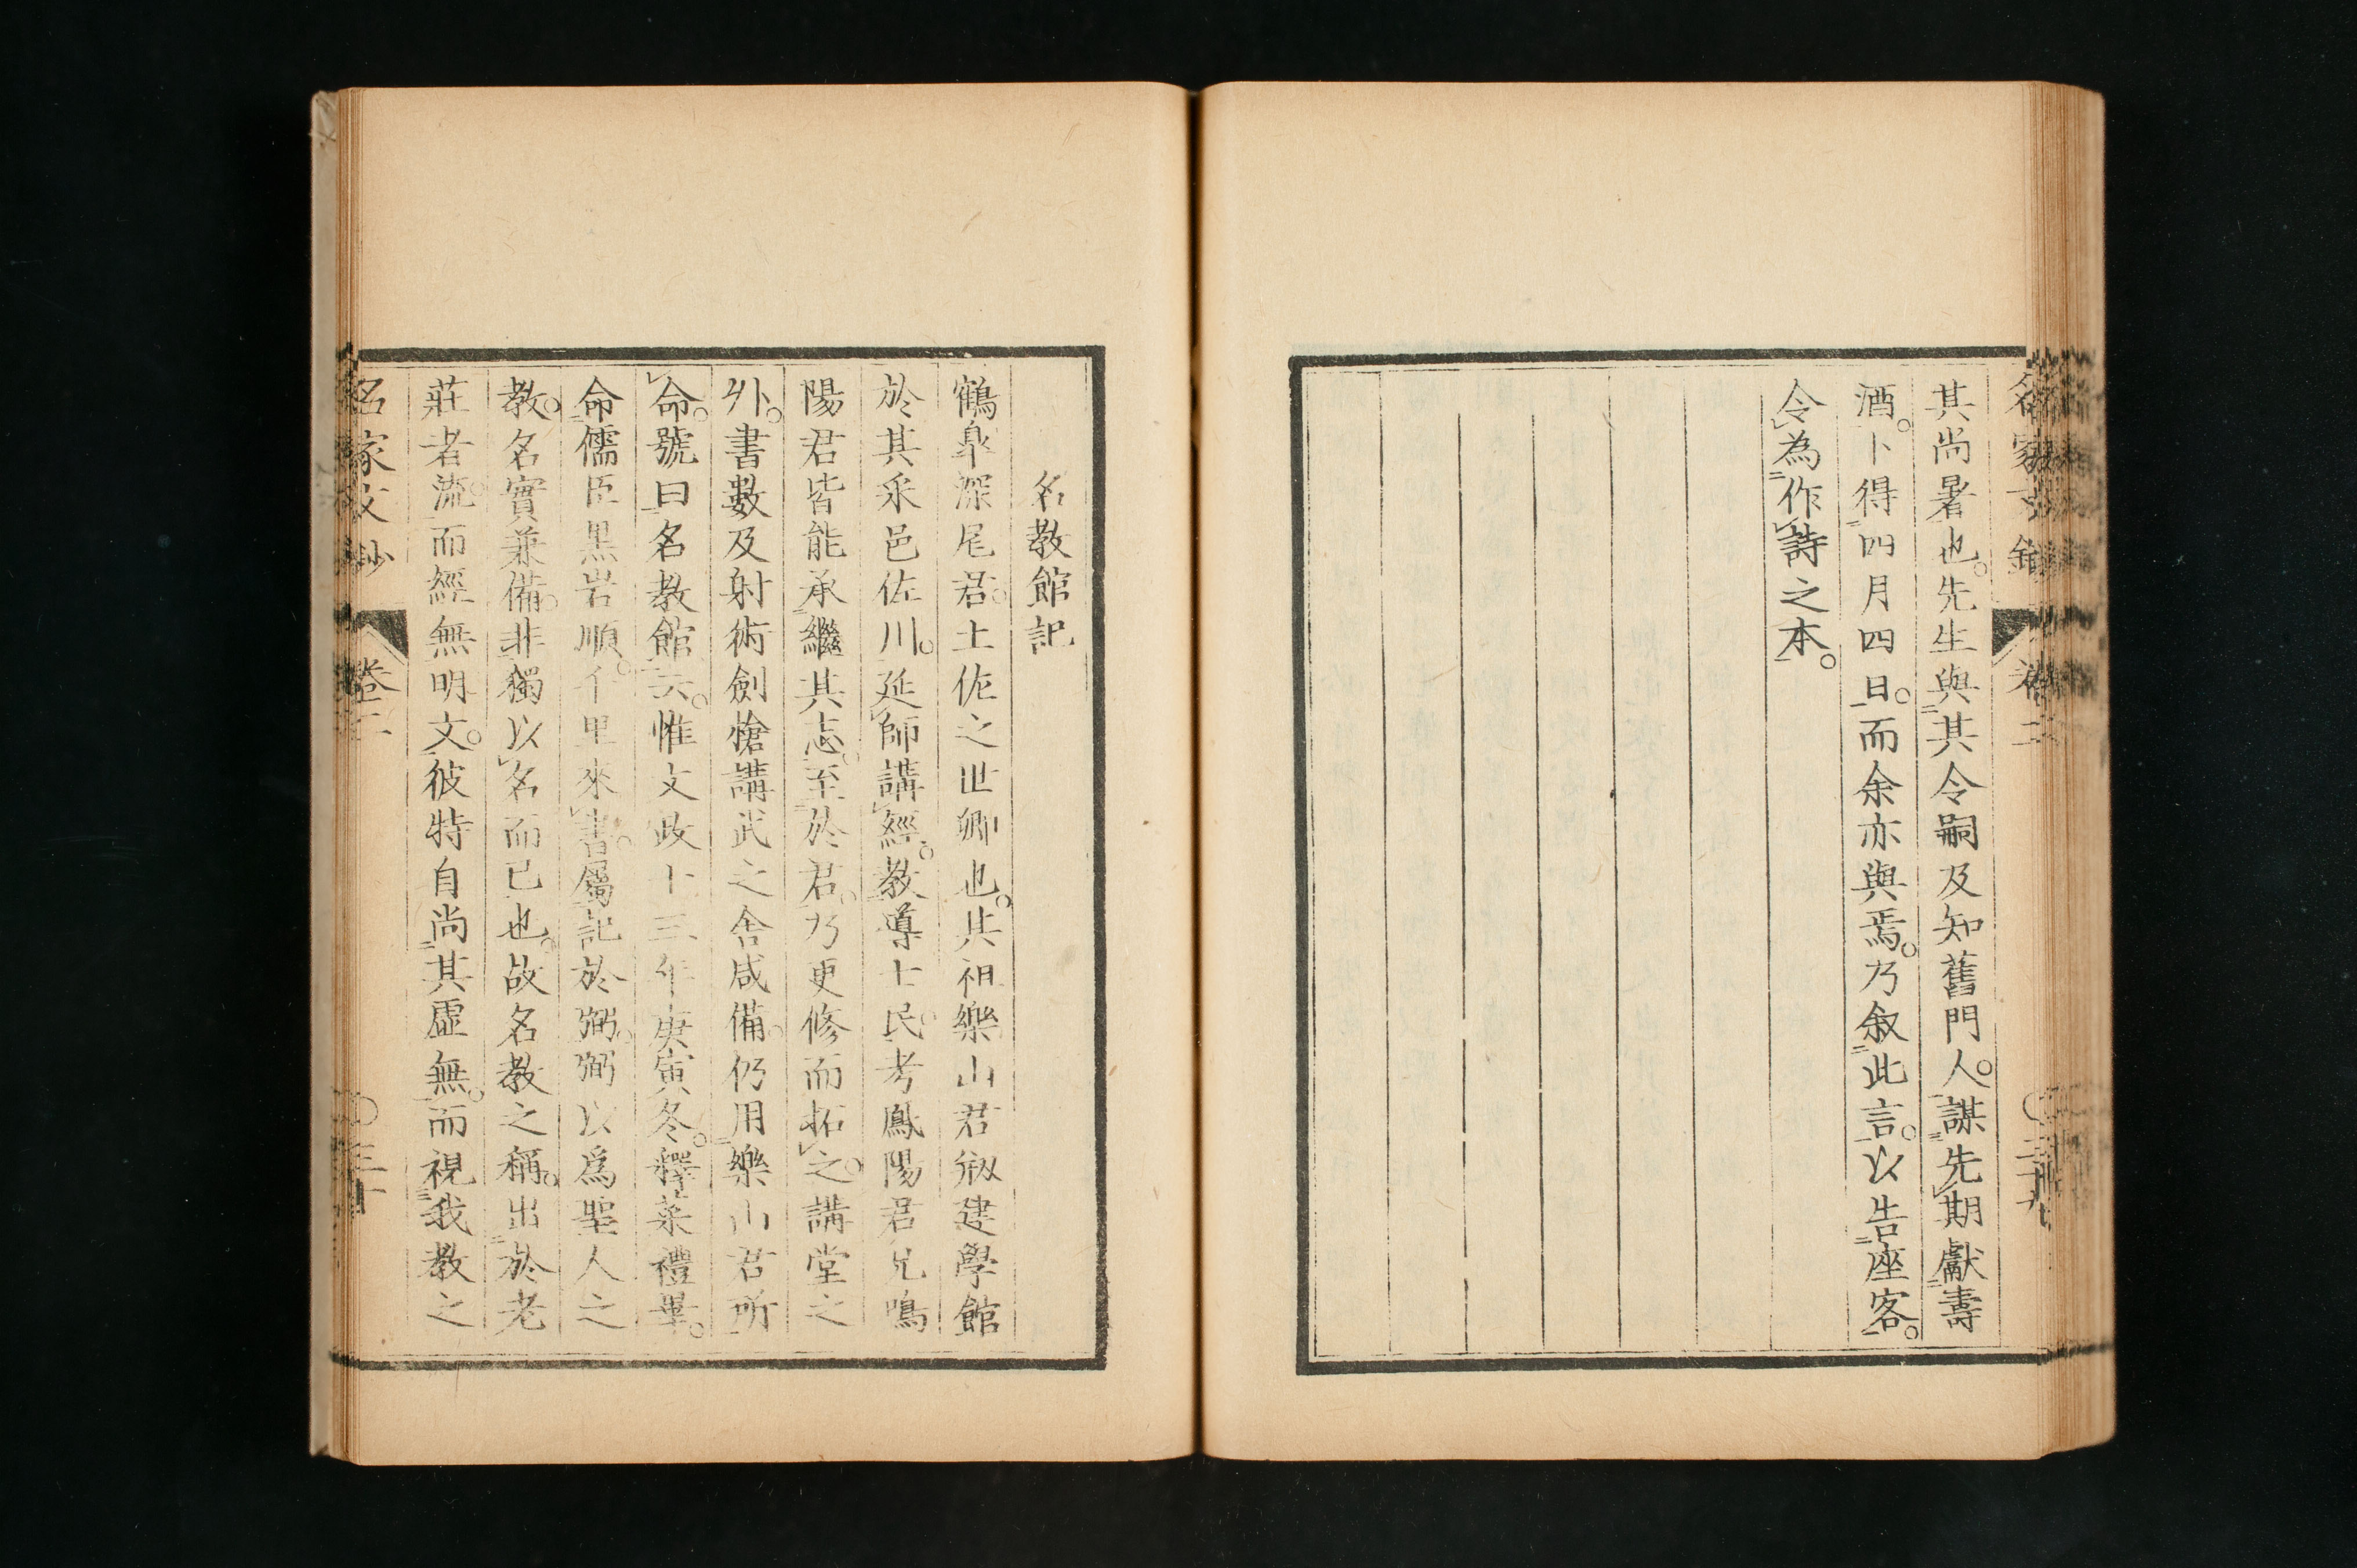 其尚暑也。先生與其令嗣及知舊門人。謀先期獻壽
酒。卜得四月四日。而余亦與焉。乃叙此言。以告座客。
令為作詩之本。
名教館記
鶴皐深尾君。土佐之世卿也。其祖樂山君剏建學館
於其采邑佐川。延師講經。教導士民。考鳳陽君兄鳴
陽君皆能承繼其志。至於君。乃更修而拓之。講堂之
外。書數及射術劍槍講武之舍咸備。仍用樂山君所
命。號曰名教館云。惟文政十三年庚寅冬。釋菜禮畢。
命儒臣黒岩順。千里來書。屬記於弼。弼以爲聖人之
教。名實兼備。非獨以名而已也。故名教之稱。出於老
莊者流。而經無明文。彼特自尚其虛無。而視我教之
名家文鈔 卷二 〇三十